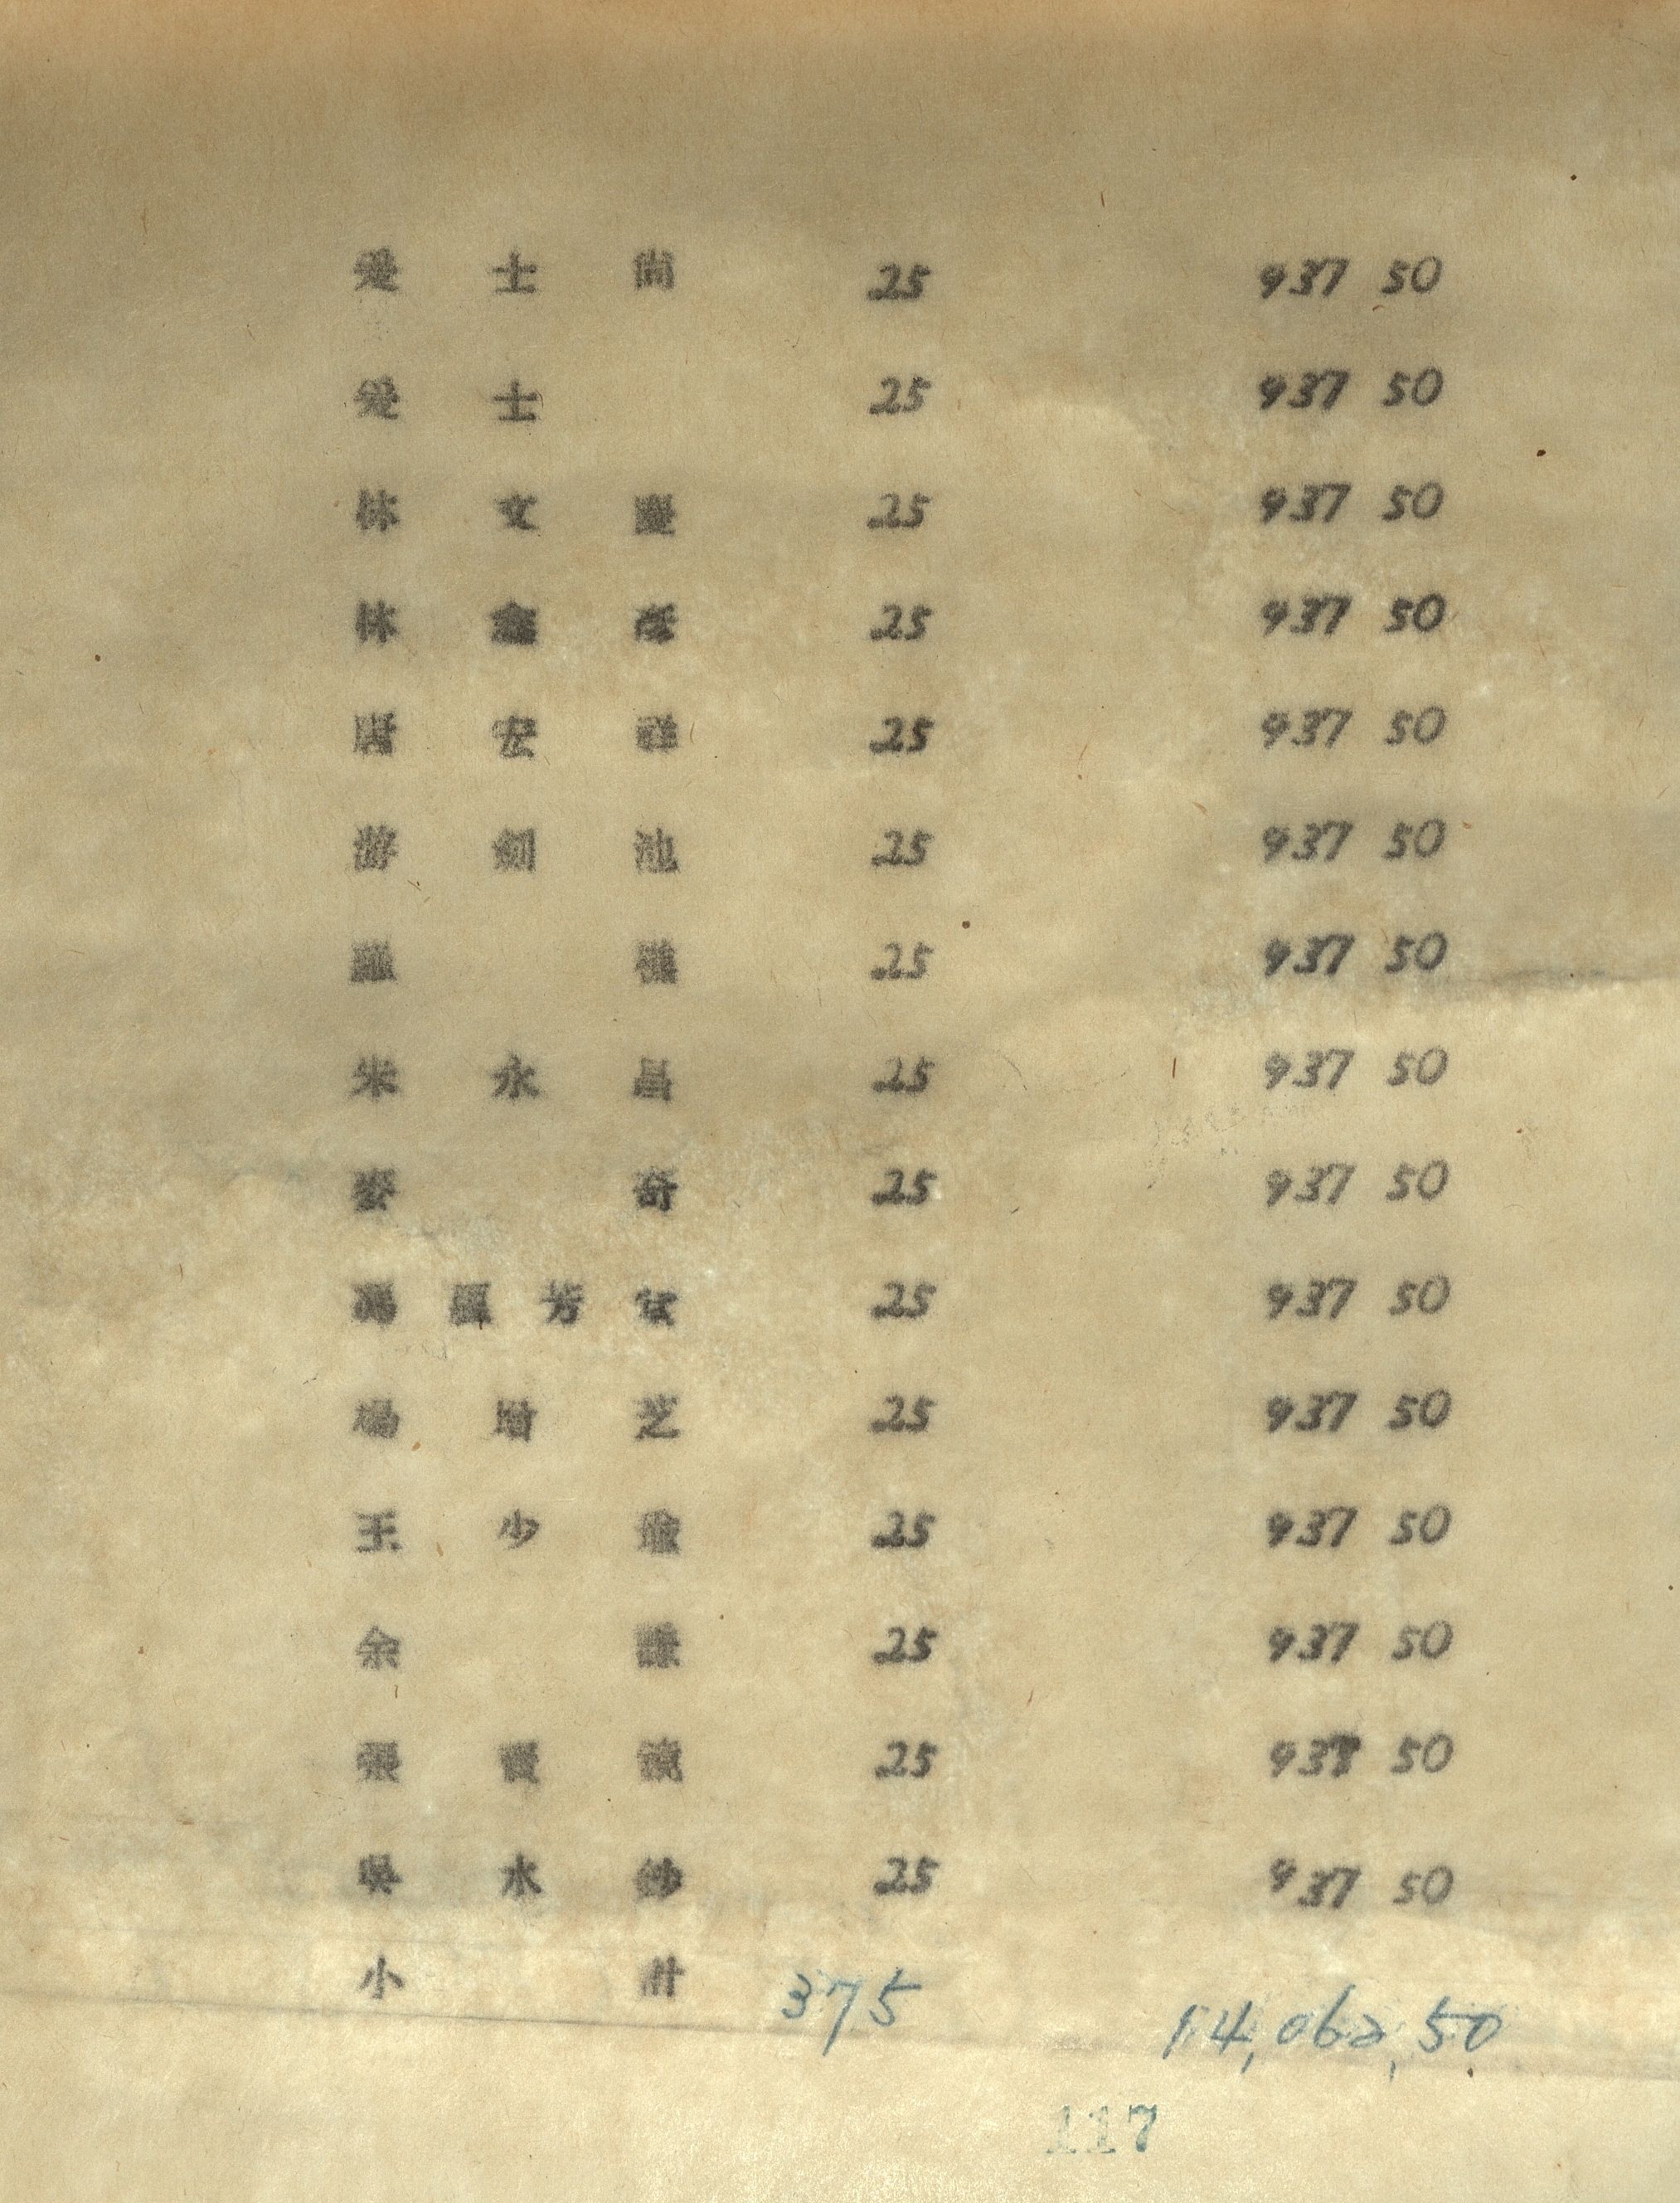 愛 士 尚 25 937 50
愛 士 25 937 50
林 文 慶 25 937 50
林 鑫 25 937 50
唐 安 25 937 50
游 劍 池 25 937 50
羅 25 937 50
朱 永 昌 25 937 50
麥 奇 25 937 50
馮 芳 25 937 50
楊 增 芝 25 937 50
王 少 瑜 25 937 50
余 謙 25 937 50
張 25 937 50
吳 水 25 937 50
小 計 375 14,062,50
117